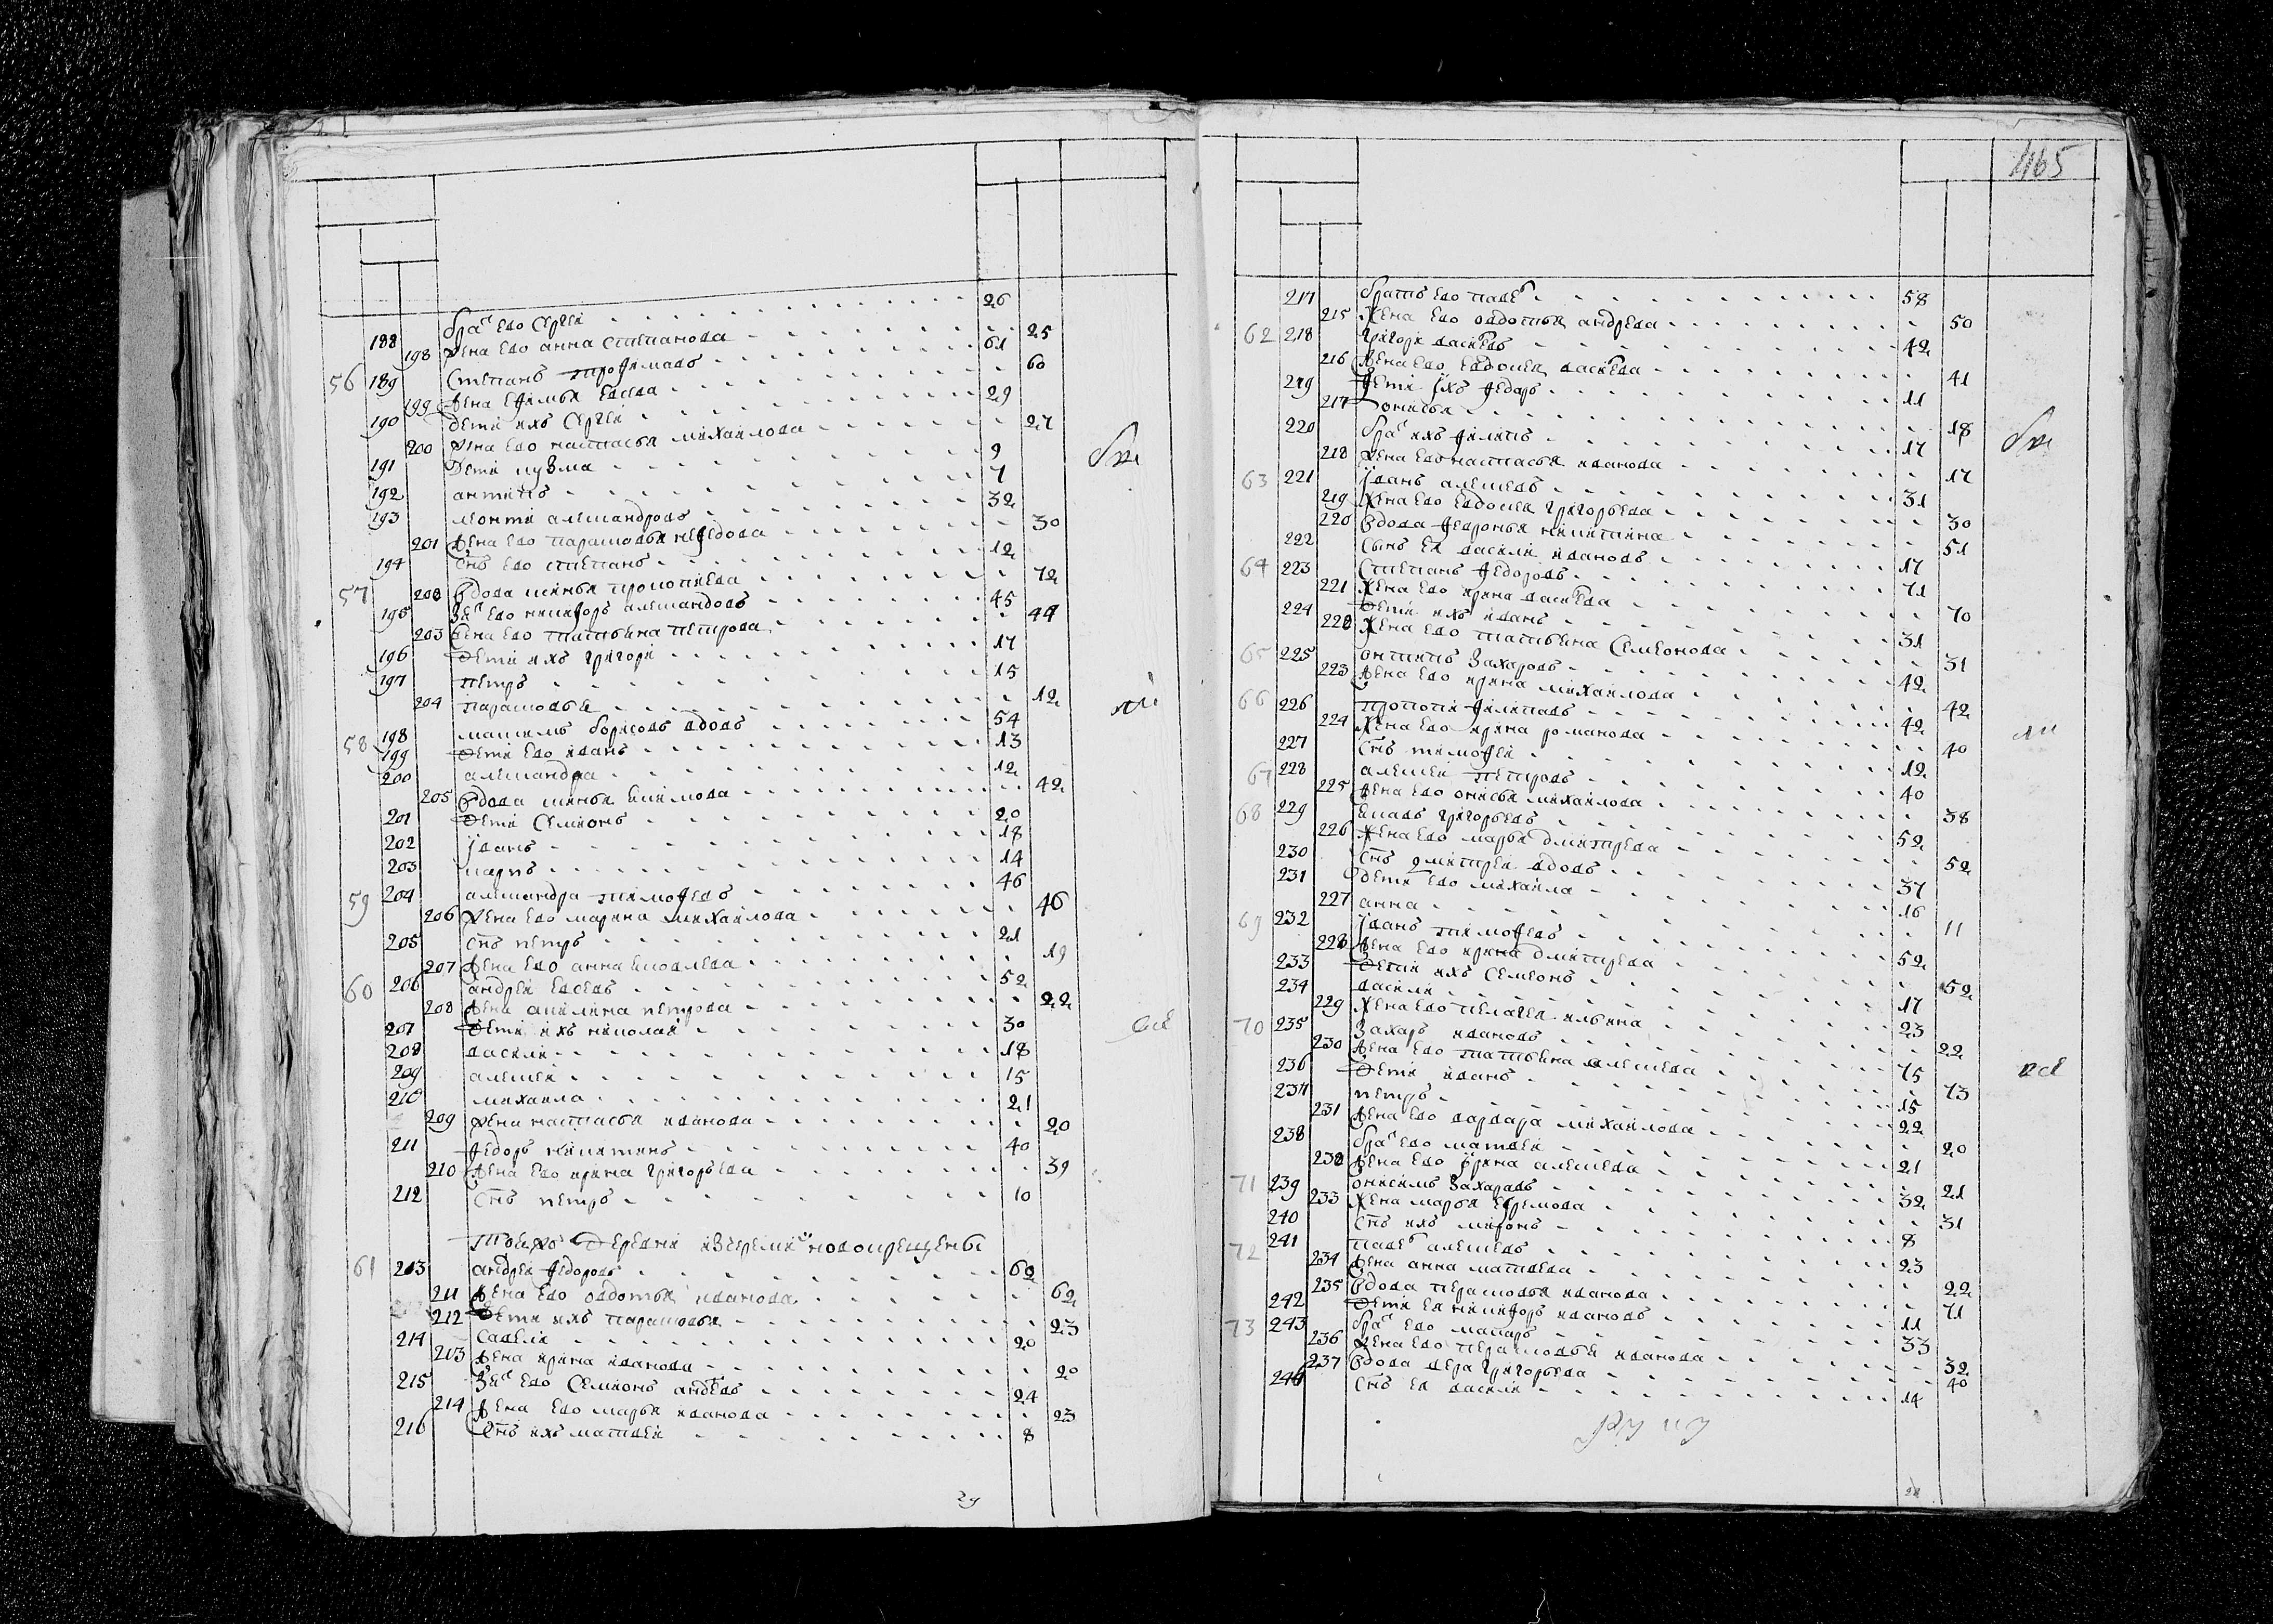 465
188 Бра͏ᵗ ево Сергеи 26
198 Жена ево анна степанова 25
56 189 Степанъ трофимавъ 61
199 Жена ефимья евсева 60
190 дети ихъ Сергеи 29
200 жена ево настасья михаилова 27
191 Дети кузма 9
192 антипъ 7
193 леонти александровъ 32
201 жена ево парасковья нефедова 30
194 снъ ево степанъ 12
57 202 вдова ксенья прокопиева 72
195 Зя͏ᵗ ево никифоръ александовъ 45
203 жена ево татьяна петрова 44
196 Дети ихъ григори 17
197 петръ 15
204 парасковья 12
58 198 максимъ борисовъ вдовъ 54
199 Дети ево иванъ 13
200 александра 12
205 Вдова ксенья екимова 42
201 Дети Семионъ 20
202 иванъ 18
203 карпъ 14
59 204 александра тимофевъ 46
206 жена ево марина михаилова 46
205 снъ петръ 21
207 жена ево анна яковлева 19
60 206 андреи евсевъ 52
208 жена акилина петрова 22
207 Дети ихъ николаи 30
208 васили 18
209 алексеи 15
210 михаила 21
209 жена настасья иванова 20
211 федоръ никитинъ 40
210 жена ево ирина григорьева 39
212 снъ петръ 10
тоежъ Деревни новокрещены
61 213 андреи федоровъ 60
211 жена ево овдотья иванова 62
212 Дети ихъ парасковья 23
214 савели 20
213 жена ирина иванова 20
215 Зя͏ᵗ ево Семионъ андревъ 24
214 жена ево марья иванова 23
216 Снъ ихъ матвеи 8
29
217 братъ ево паве 58
215 Жена ево овдотья андрева 50
62 218 григори васиевъ 42
216 жена ево евдокея васиева 41
219 дети ихъ федоръ 11
217 онисья 18
220 бра͏ᵗ ихъ филипъ 17
218 жена ево настасья иванова 17
63 221 иванъ алексевъ 31
219 жена ево евдокея григорьева 30
220 вдова федронья никитина 51
222 сынъ ея васили ивановъ 17
64 223 Степанъ федоровъ 71
221 Жена ево ирина васиева 70
224 Дети ихъ иванъ 31
222 Жена ево татьяна Семионова 31
65 225 онтипъ Захаровъ 42
223 жена ево ирина михаилова 42
66 226 прокопи филипавъ 42
224 Жена ево ирина романова 40
227 Снъ тимофеи 12
67 228 алексеи петровъ 40
225 жена ево онисья михаилова 38
68 229 григорьевъ 52
226 жена ево марья дмитрева 52
230 Снъ дмитреи вдовъ 37
231 дети ево михаила 16
227 анна 11
69 232 иванъ тимофевъ 52
228 жена ево ирина дмитрева 52
233 Дети ихъ Семеонъ 17
234 васили 23
229 Жена ево пелагея ильина 22
70 235 Захаръ ивановъ 75
230 жена ево татьяна алексева 73
236 Дети иванъ 15
237 петръ 22
231 жена ево варвара михаилова 20
238 бра͏ᵗ ево матвеи 21
232 жена ево ирина алексева 21
71 239 онисимъ Захаравъ 32
233 жена марья ефремова 31
240 Снъ ихъ миронъ 8
72 241 паве алексевъ 23
234 жена анна матвева 22
235 вдова перасковья иванова 71
242 Дети ея никифоръ ивановъ 11
73 243 бра͏ᵗ ево макаръ 33
236 жена ево перасковья иванова 32
237 вдова вера григорьева 40
244 Снъ ея васили 14